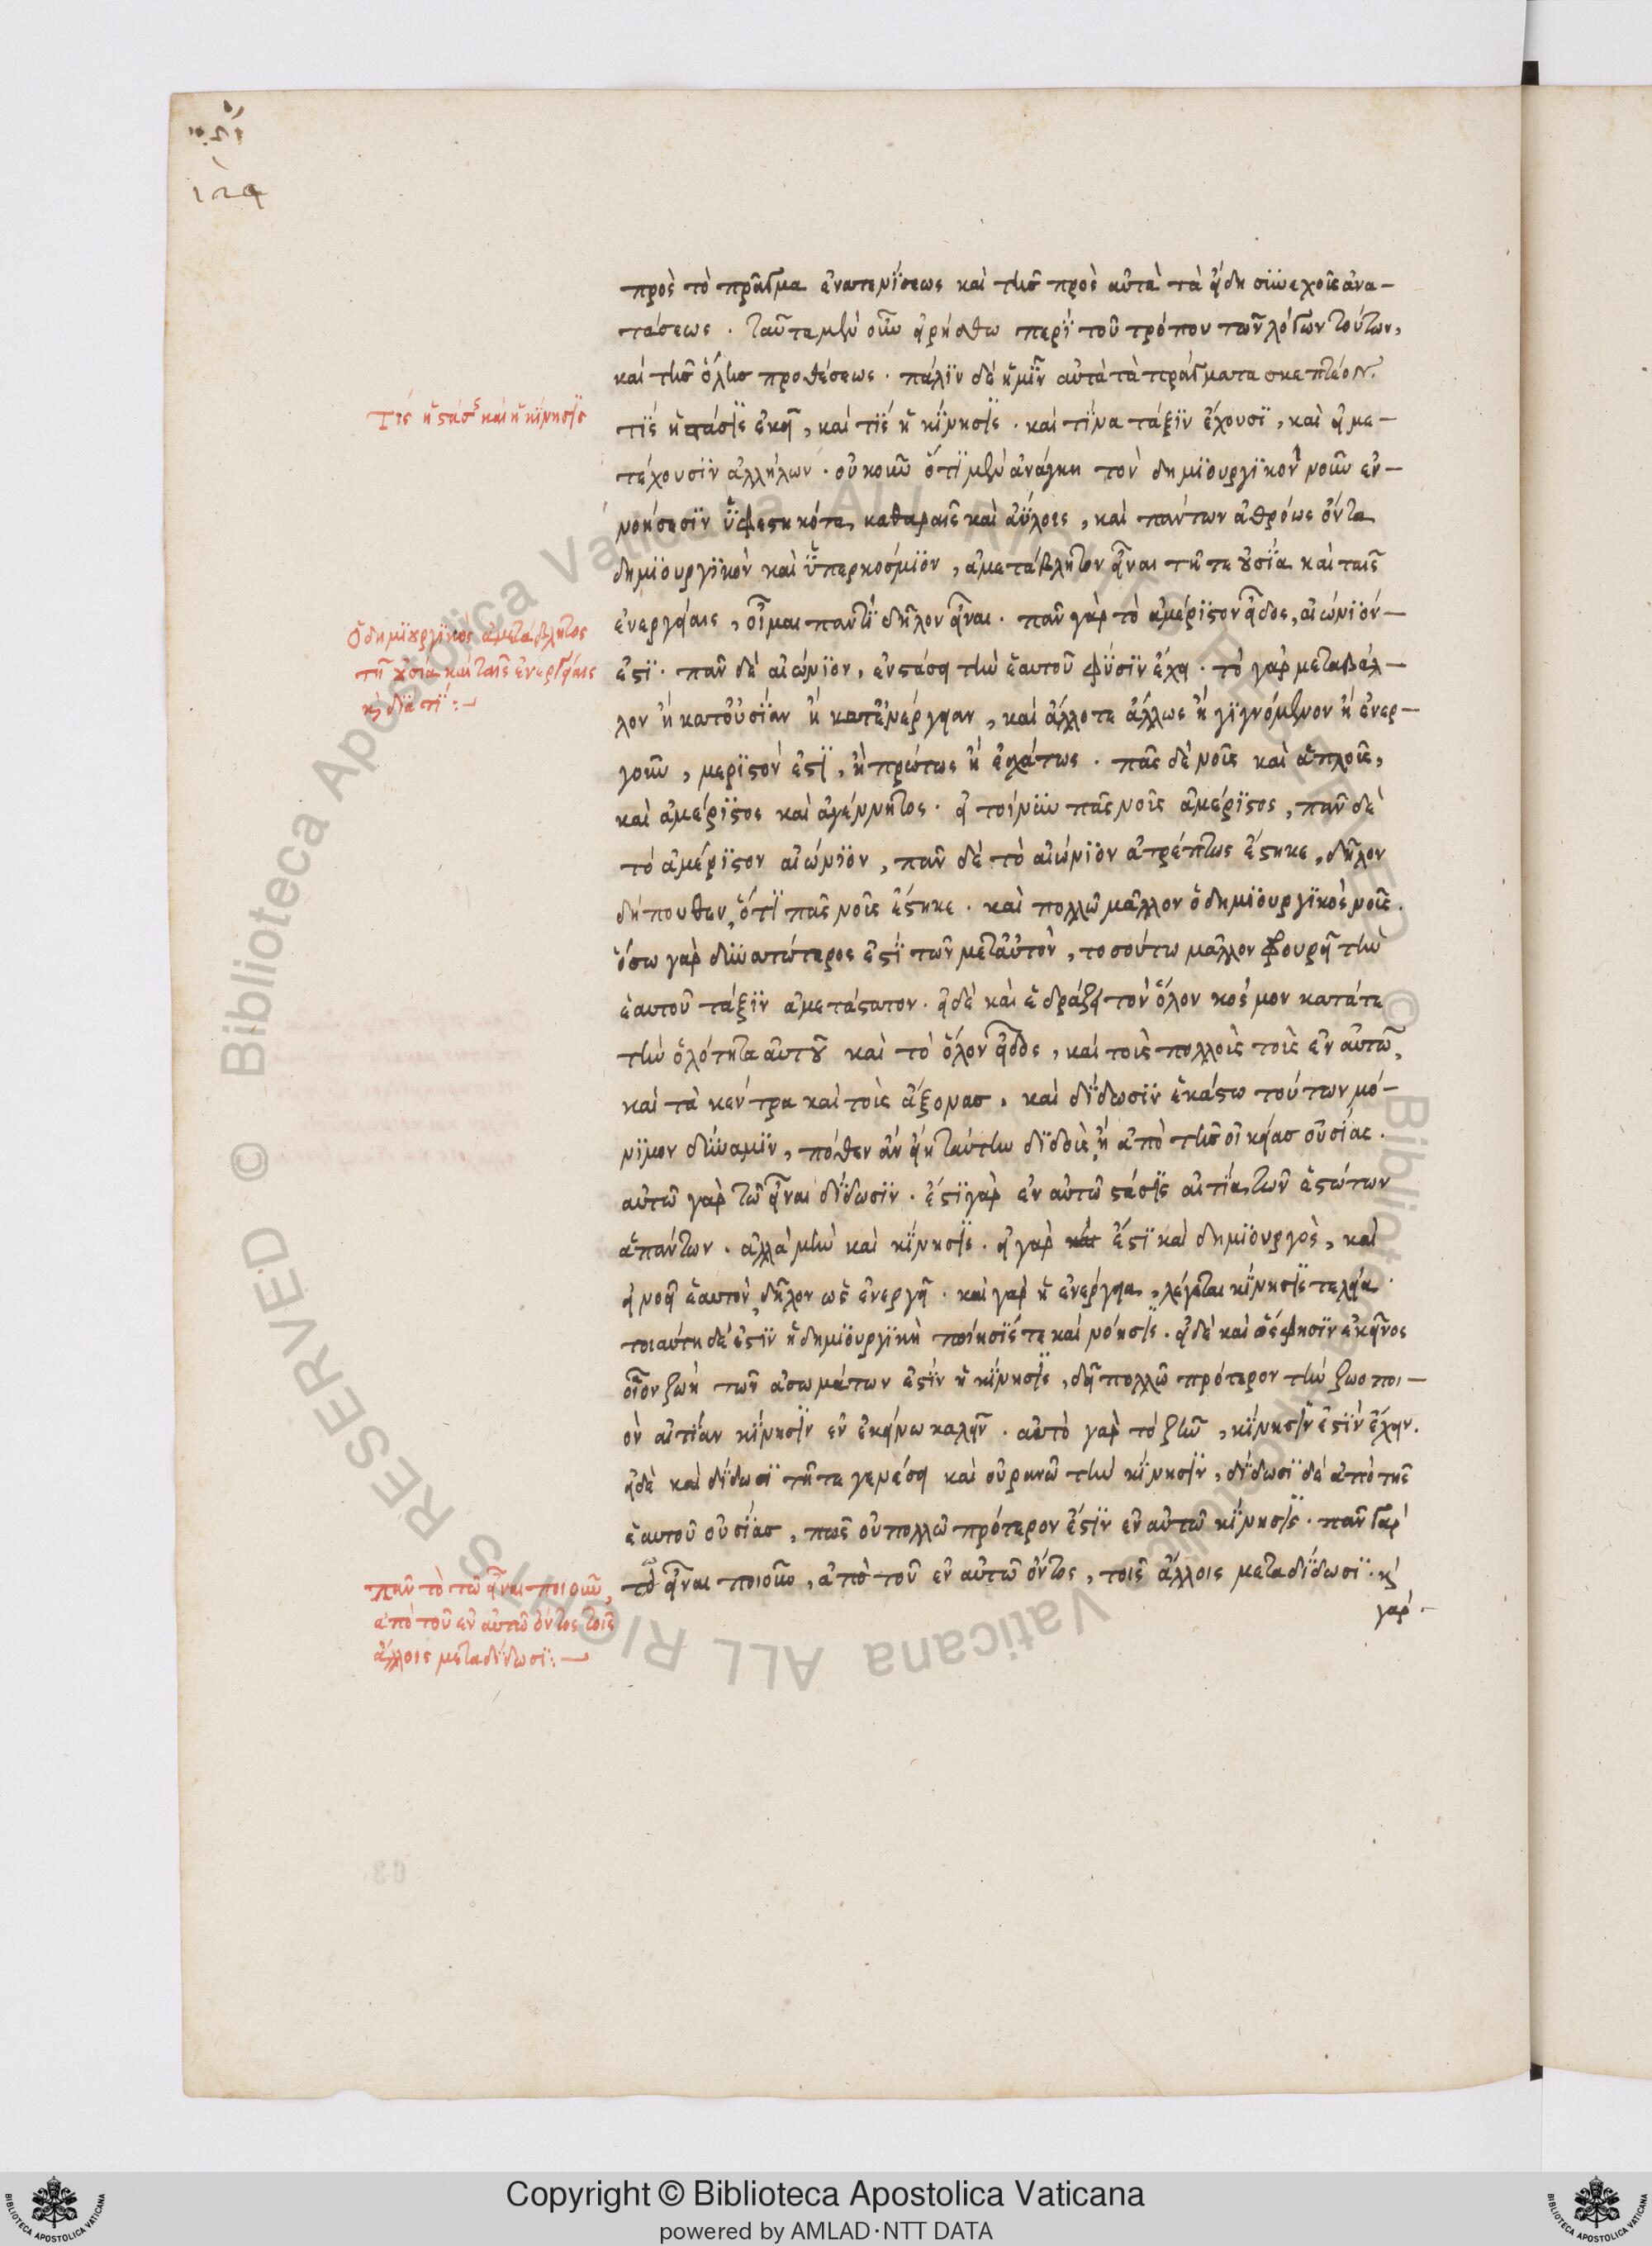 πρὸς τὸ πρᾶγμα ἐνατενίσεως καὶ τῆς πρὸς αὐτὰ τὰ εἴδη συνεχοῦς ἀνα-
τάσεως. ταῦτα μὲν οὖν εἰρήσθω περὶ τοῦ τρόπου τῶν λόγων τούτων,
καὶ τῆς ὅλης προθέσεως. πάλιν δὲ ἡμῖν αὐτὰ τὰ πράγματα σκεπτέον.
Τίς ἡ στάσις καὶ ἡ κίνησις
τίς ἡ στάσις ἐκεῖ, καὶ τίς ἡ κίνησις. καὶ τίνα τάξιν ἔχουσι, καὶ εἰ με-
τέχουσιν ἀλλήλων. οὐκοῦν ὅτι μὲν ἀνάγκη τὸν δημιουργικὸν νοῦν ἐν
νοήσεσιν ὑφεστηκότα καθαραῖς καὶ ἀΰλοις, καὶ πάντων ἀθρόως ὄντα
δημιουργικὸν καὶ ὑπερκόσμιον, ἀμετάβλητον εἶναι τῇ τε οὐσίᾳ καὶ ταῖς
Ὁ δημιουργικὸς ἀμετάβλητος
τῇ οὐσίᾳ καὶ ταῖς ἐνεργείαις
καὶ διὰ τί:
ἐνεργείαις, οἶμαι παντὶ δῆλον εἶναι. πᾶν γὰρ τὸ ἀμέριστον εἶδος, αἰώνιόν-
ἐστι. πᾶν δὲ αἰώνιον, ἐν στάσει τὴν ἑαυτοῦ φύσιν ἔχει. τὸ γὰρ μεταβάλ-
λον ἢ κατ' οὐσίαν ἢ κατ' ἐνέργειαν, καὶ ἄλλοτε ἄλλως ἢ γιγνόμενον ἢ ἐνερ-
γοῦν, μεριστόν ἐστι, ἢ πρώτως ἢ ἐσχάτως. πᾶς δὲ νοῦς καὶ ἁπλοῦς,
καὶ ἀμέριστος καὶ ἀγέννητος. εἰ τοίνυν πᾶς νοῦς ἀμέριστος, πᾶν δὲ
τὸ ἀμέριστον αἰώνιον, πᾶν δὲ τὸ αἰώνιον ἀτρέπτως ἕστηκε, δῆλον
δήπουθεν, ὅτι πᾶς νοῦς ἕστηκε. καὶ πολλῷ μᾶλλον ὁ δημιουργικὸς νοῦς.
ὅσῳ γὰρ δυνατώτερός ἐστι τῶν μετ' αὐτὸν, τοσούτῳ μᾶλλον φρουρεῖ τὴν
ἑαυτοῦ τάξιν ἀμετάστατον. εἰ δὲ καὶ ἑδράζει τὸν ὅλον κόσμον κατά τε
τὴν ὁλότητα αὐτοῦ καὶ τὸ ὅλον εἶδος, καὶ τοὺς πολλοὺς τοὺς ἐν αὐτῷ,
καὶ τὰ κέντρα καὶ τοὺς ἄξονας, καὶ δίδωσιν ἑκάστῳ τούτων μό-
νιμον δύναμιν, πόθεν ἂν εἴη ταύτην διδοὺς, ἢ ἀπὸ τῆς οἰκείας οὐσίας.
αὐτῷ γὰρ τῷ εἶναι δίδωσιν. ἔστι γὰρ ἐν αὐτῷ στάσις αἰτία τῶν ἑστώτων
ἁπάντων. ἀλλὰ μὴν καὶ κίνησις. εἰ γὰρ ἐστι καὶ δημιουργὸς, καὶ
εἰ νοεῖ ἑαυτὸν, δῆλον ὡς ἐνεργεῖ. καὶ γὰρ ἡ ἐνέργεια, λέγεται κίνησις τελεία.
τοιαύτη δέ ἐστιν ἡ δημιουργικὴ ποίησίς τε καὶ νόησις. εἰ δὲ καὶ ὥς φησιν ἐκεῖνος
οἷον ζωὴ τῶν ἀσωμάτων ἐστὶν ἡ κίνησις, δεῖ πολλῷ πρότερον τὴν ζωοποι-
ὸν αἰτίαν κίνησιν ἐν ἐκείνῳ καλεῖν. αὐτὸ γὰρ τὸ ζῶν, κίνησιν ἐστὶν ἔχειν.
εἰ δὲ καὶ δίδωσι τῇ τε γενέσει καὶ οὐρανῷ τὴν κίνησιν, δίδωσι δὲ ἀπὸ τῆς
ἑαυτοῦ οὐσίας, πῶς οὐ πολλῷ πρότερον ἔστιν ἐν αὐτῷ κίνησις. πᾶν γὰρ
Πᾶν τὸ τῷ εἶναι ποιοῦν,
ἀπὸ τοῦ ἐν αὐτῷ ὄντος τοῖς
ἄλλοις μεταδίδωσι:
τὸ εἶναι ποιοῦν, ἀπὸ τοῦ ἐν αὐτῷ ὄντος, τοῖς ἄλλοις μεταδίδωσι. καὶ
γὰρ
Copyright © Biblioteca Apostolica Vaticana
powered by AMLAD·NTT DATA